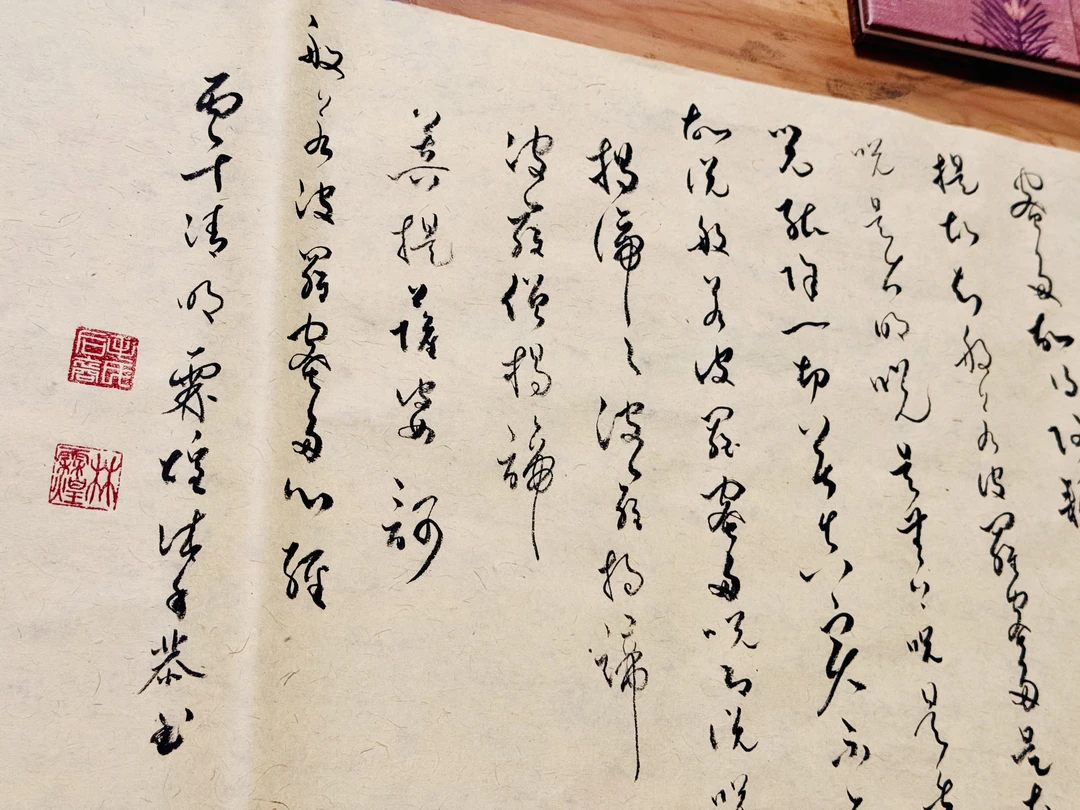 蜜多故得阿耨
提故知般若波羅蜜多是大
呪是大明呪是無上呪是無
呪能除一切苦真實不
故說般若波羅蜜多呪即說呪
揭諦〻波羅揭諦
波羅僧揭諦
菩提薩婆訶
般若波羅蜜多心經
丙午清明霖煌沐手恭書
林霖煌